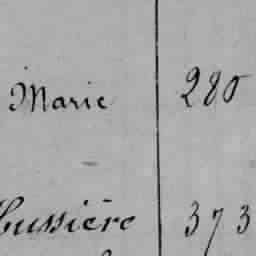 Marie 280
ussière 373